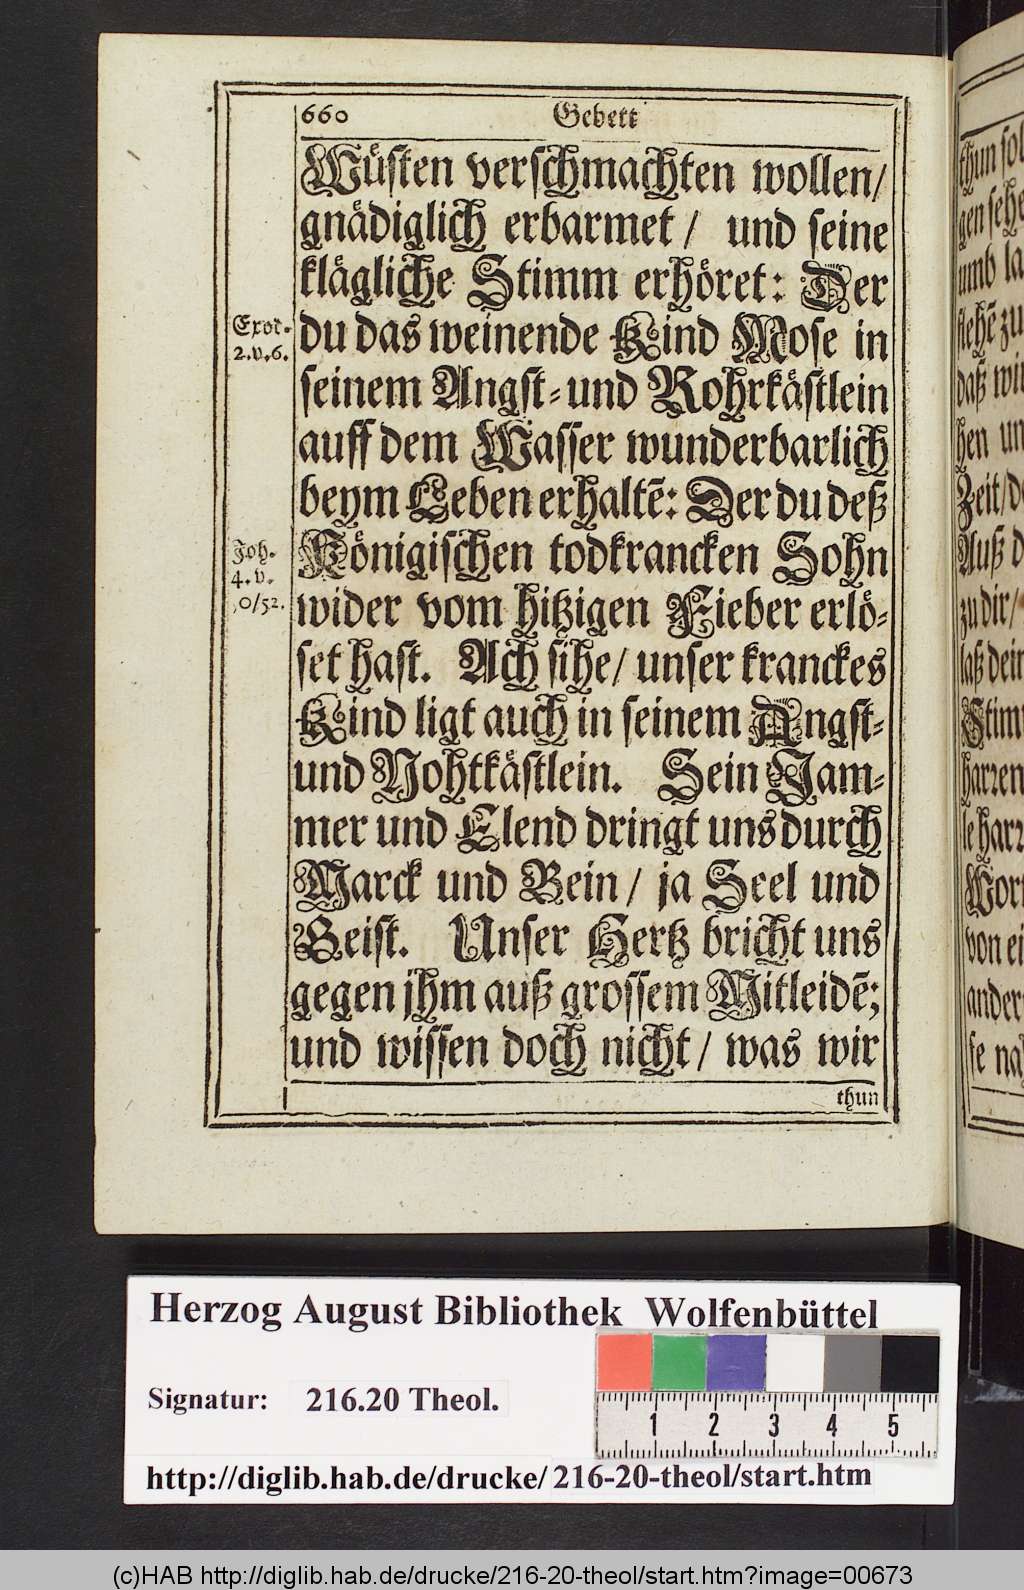 660 Gebett
Wüsten verschmachten wollen/
gnädiglich erbarmet / und seine
klägliche Stimm erhöret: Der
Exod.
2.v.6.
du das weinende Kind Mose in
seinem Angst- und Rohrkästlein
auff dem Wasser wunderbarlich
beym Leben erhaltē: Der du deß
Joh.
4. v.
50/52.
Königischen todkrancken Sohn
wider vom hitzigen Fieber erlö-
set hast. Ach sihe/ unser kranckes
Kind ligt auch in seinem Angst-
und Nohtkästlein. Sein Jam-
mer und Elend dringt uns durch
Marck und Bein/ ja Seel und
Geist. Unser Hertz bricht uns
gegen jhm auß grossem Mitleidē;
und wissen doch nicht/ was wir
thun
thun sol
gen sehe
umb la
flehē zu
daß wir
hen un
Zeit/ de
Auß d
zu dir/
laß dein
Stim
harren
le harr
Wort
von ei
ander
se na
Herzog August Bibliothek Wolfenbüttel
Signatur: 216.20 Theol.
1 2 3 4 5
http://diglib.hab.de/drucke/216-20-theol/start.htm
(c)HAB http://diglib.hab.de/drucke/216-20-theol/start.htm?image=00673